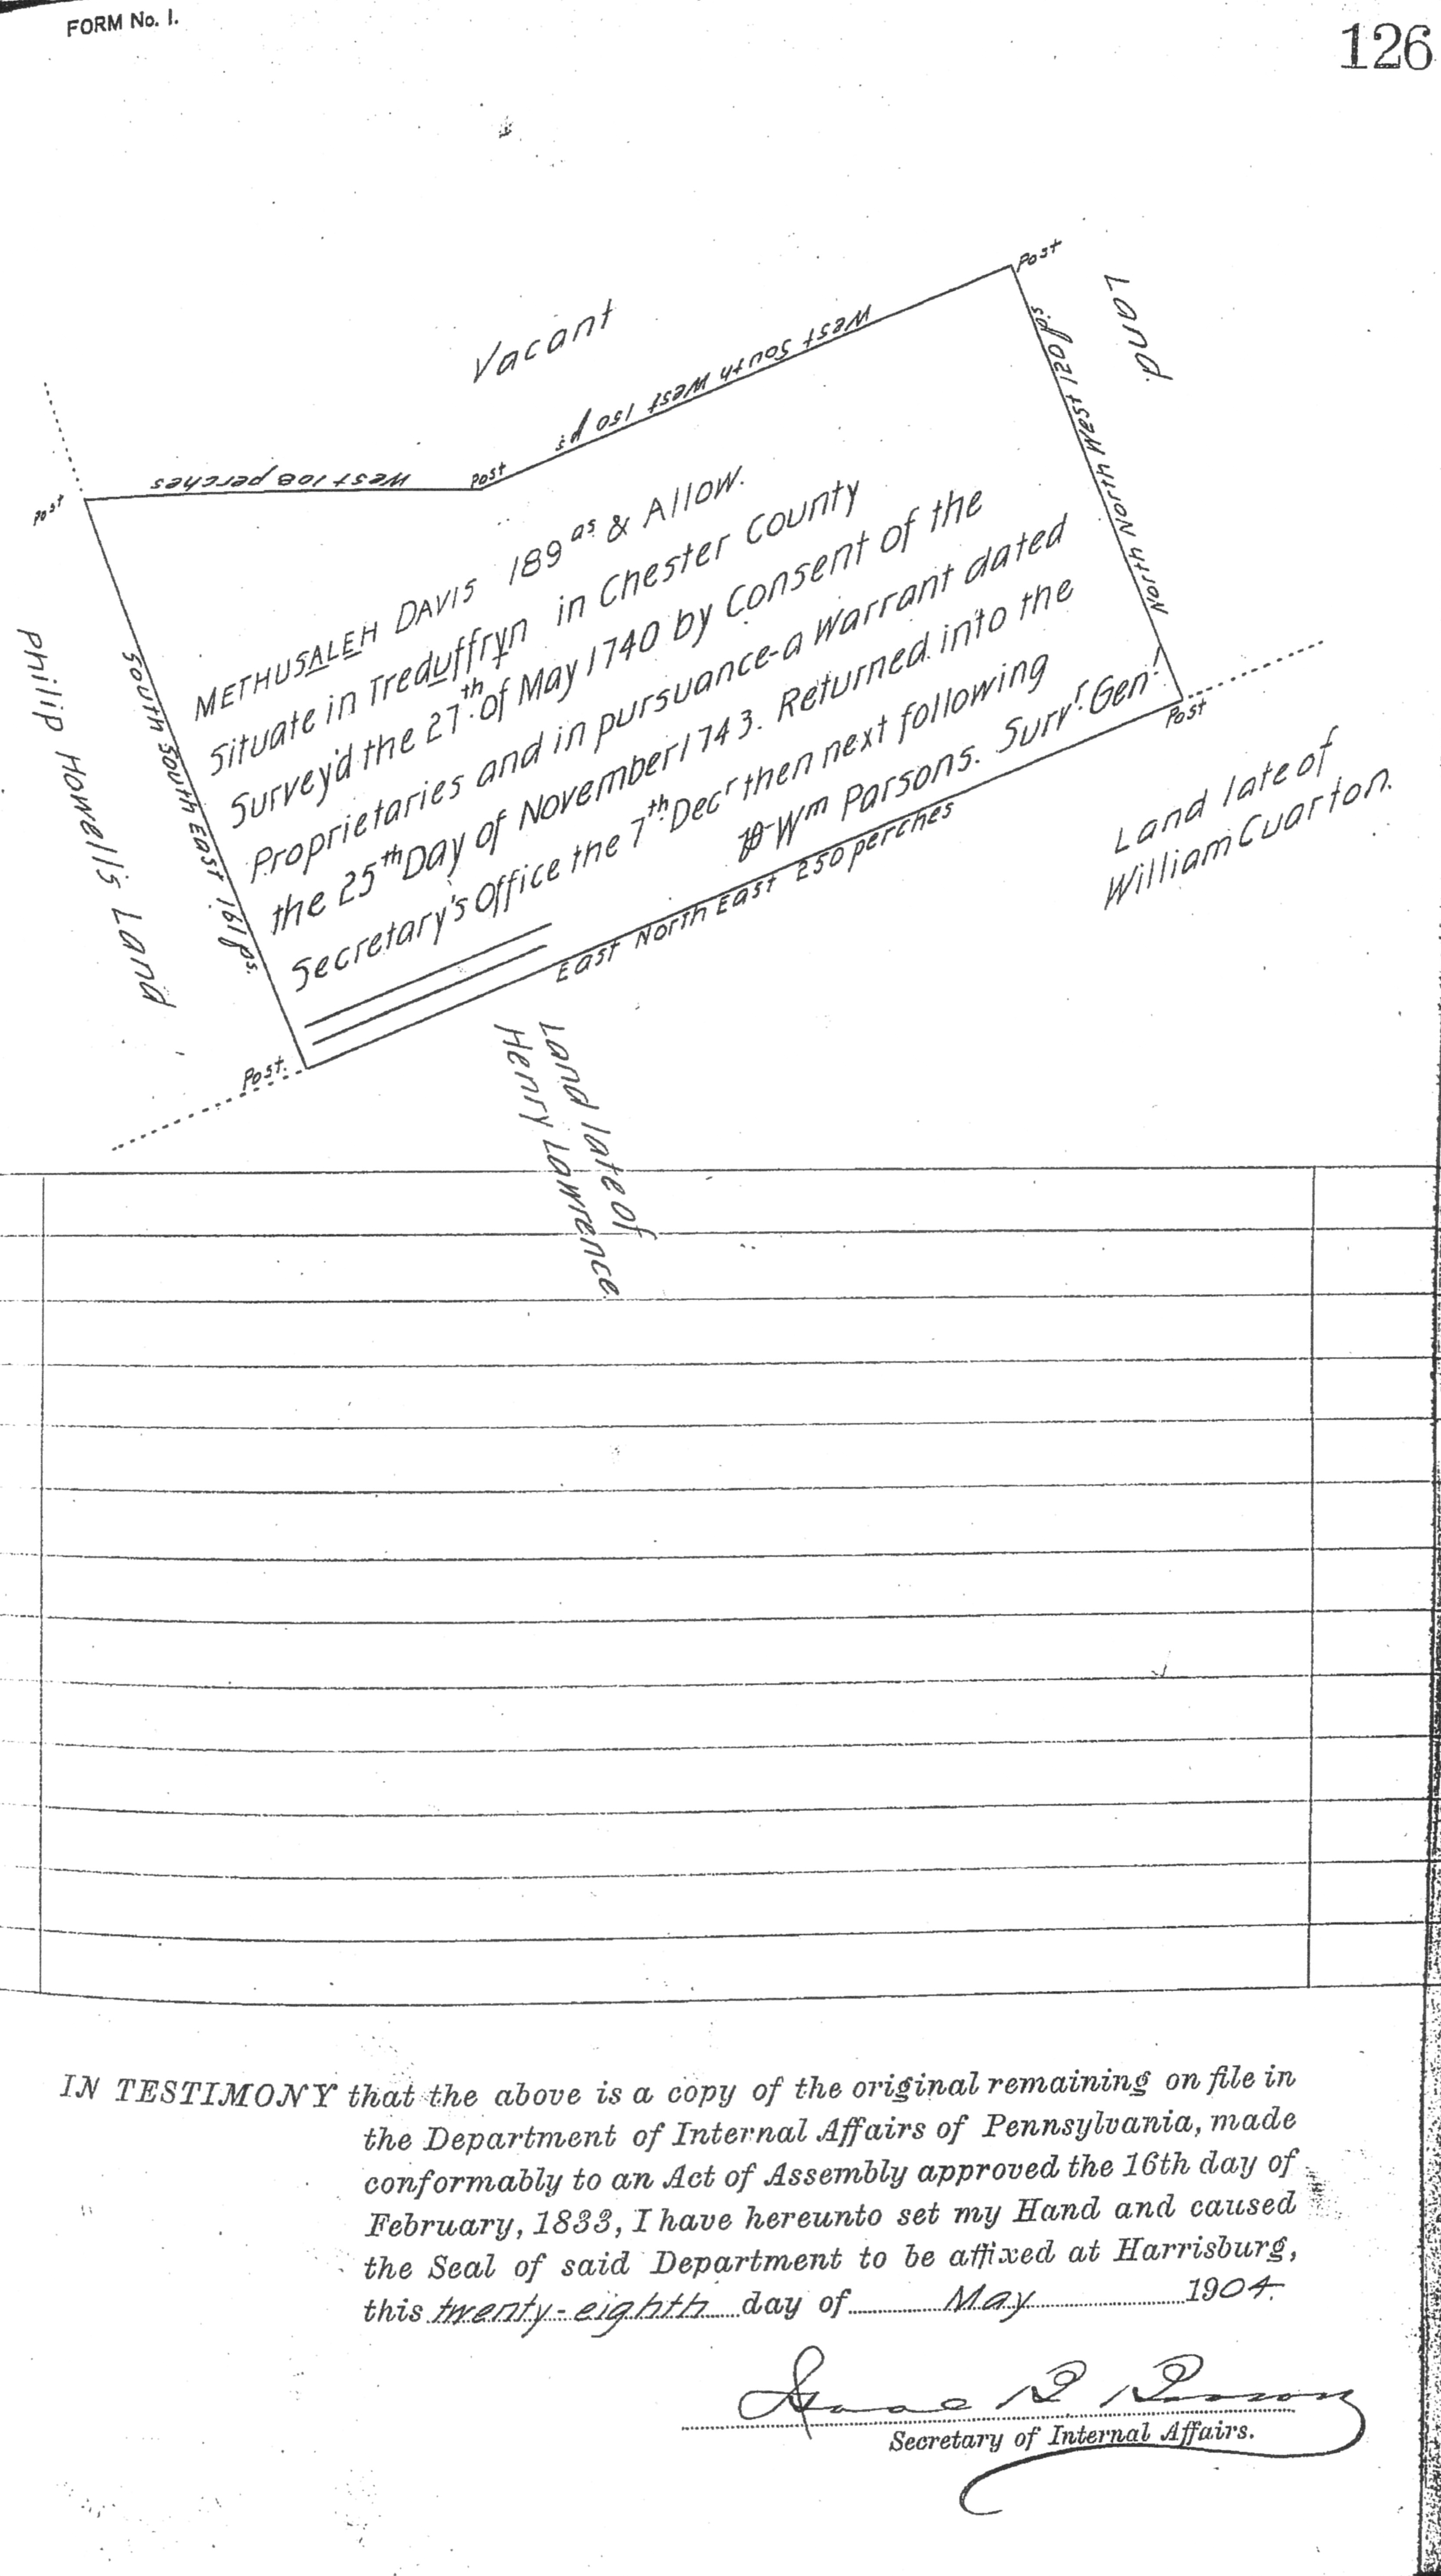 FORM No. 1.
126
Post
Land.
Vacant
West South West 150 ps
North North West 120 ps
West 108 perches
Post
Post
METHUSALEH DAVIS 189 as. & Allow.
Situate in Treduffryn in Chester County
Survey'd the 27th. of May 1740 by Consent of the
Proprietaries and in pursuance-a Warrant dated
the 25th Day of November 1743. Returned into the
Secretary's Office the 7th. Decr then next following
Wm Parsons. Survr. Genl.
South South East 161 ps.
Philip Howell's Land
East North East 250 perches
Post
Post.
Land late of
William Cuarton.
Land late of
Henry Lawrence.
IN TESTIMONY that the above is a copy of the original remaining on file in
the Department of Internal Affairs of Pennsylvania, made
conformably to an Act of Assembly approved the 16th day of
February, 1833, I have hereunto set my Hand and caused
the Seal of said Department to be affixed at Harrisburg,
this twenty-eighth day of May 1904.
Isaac B. Brown
Secretary of Internal Affairs.